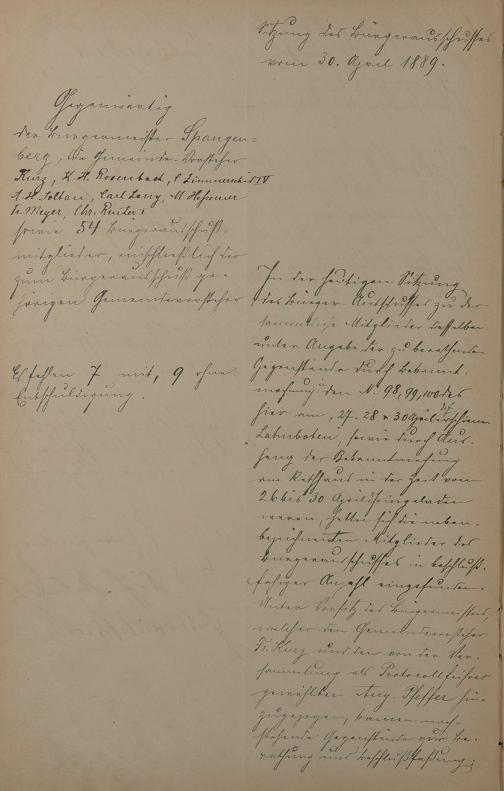 Sitzung des Bürgerausschusses
vom 30. April 1889.
Gegenwärtig
der Bürgermeister Spangen-
berg, die Gemeinde-Vorsteher
Kurz, H. Rosenbach, C. Zimmerschied IV
A. H. Soltau, Carl Lang, M. Hofmann
Fr. Meyer, Chr. Reuter
sowie 54 Bürgerausschuß-
mitglieder, einschließlich der
zum Bürgerausschuß ge-
hörigen Gemeindevorsteher
Es fehlen 7 mit, 9 ohne
Entschuldigung.
In der heutigen Sitzung
des Bürger-Ausschusses zu der
sämmtliche Mitglieder desselben
unter Angabe der zu berathenden
Gegenstände durch Bekannt-
machung in den No. 98, 99, 100 des
hier am 27. 28 & 30 April erschienenen
Lahnboten, sowie durch Aus-
hang der Bekanntmachung
am Rathhaus in der Zeit vom
26 bis 30 April eingeladen
waren, hatten sich die neben-
bezeichneten Mitglieder des
Bürgerausschusses in beschluß-
fähiger Anzahl eingefunden.
Unter Vorsitz des Bürgermeisters,
welcher den Gemeindevorsteher
Fr. Kurz und den von der Ver-
sammlung als Protocollführer
gewählten Aug. Pfeffer hin-
zugezogen, kamen nach-
stehende Gegenstände zur Be-
rathung und Beschlußfassung: